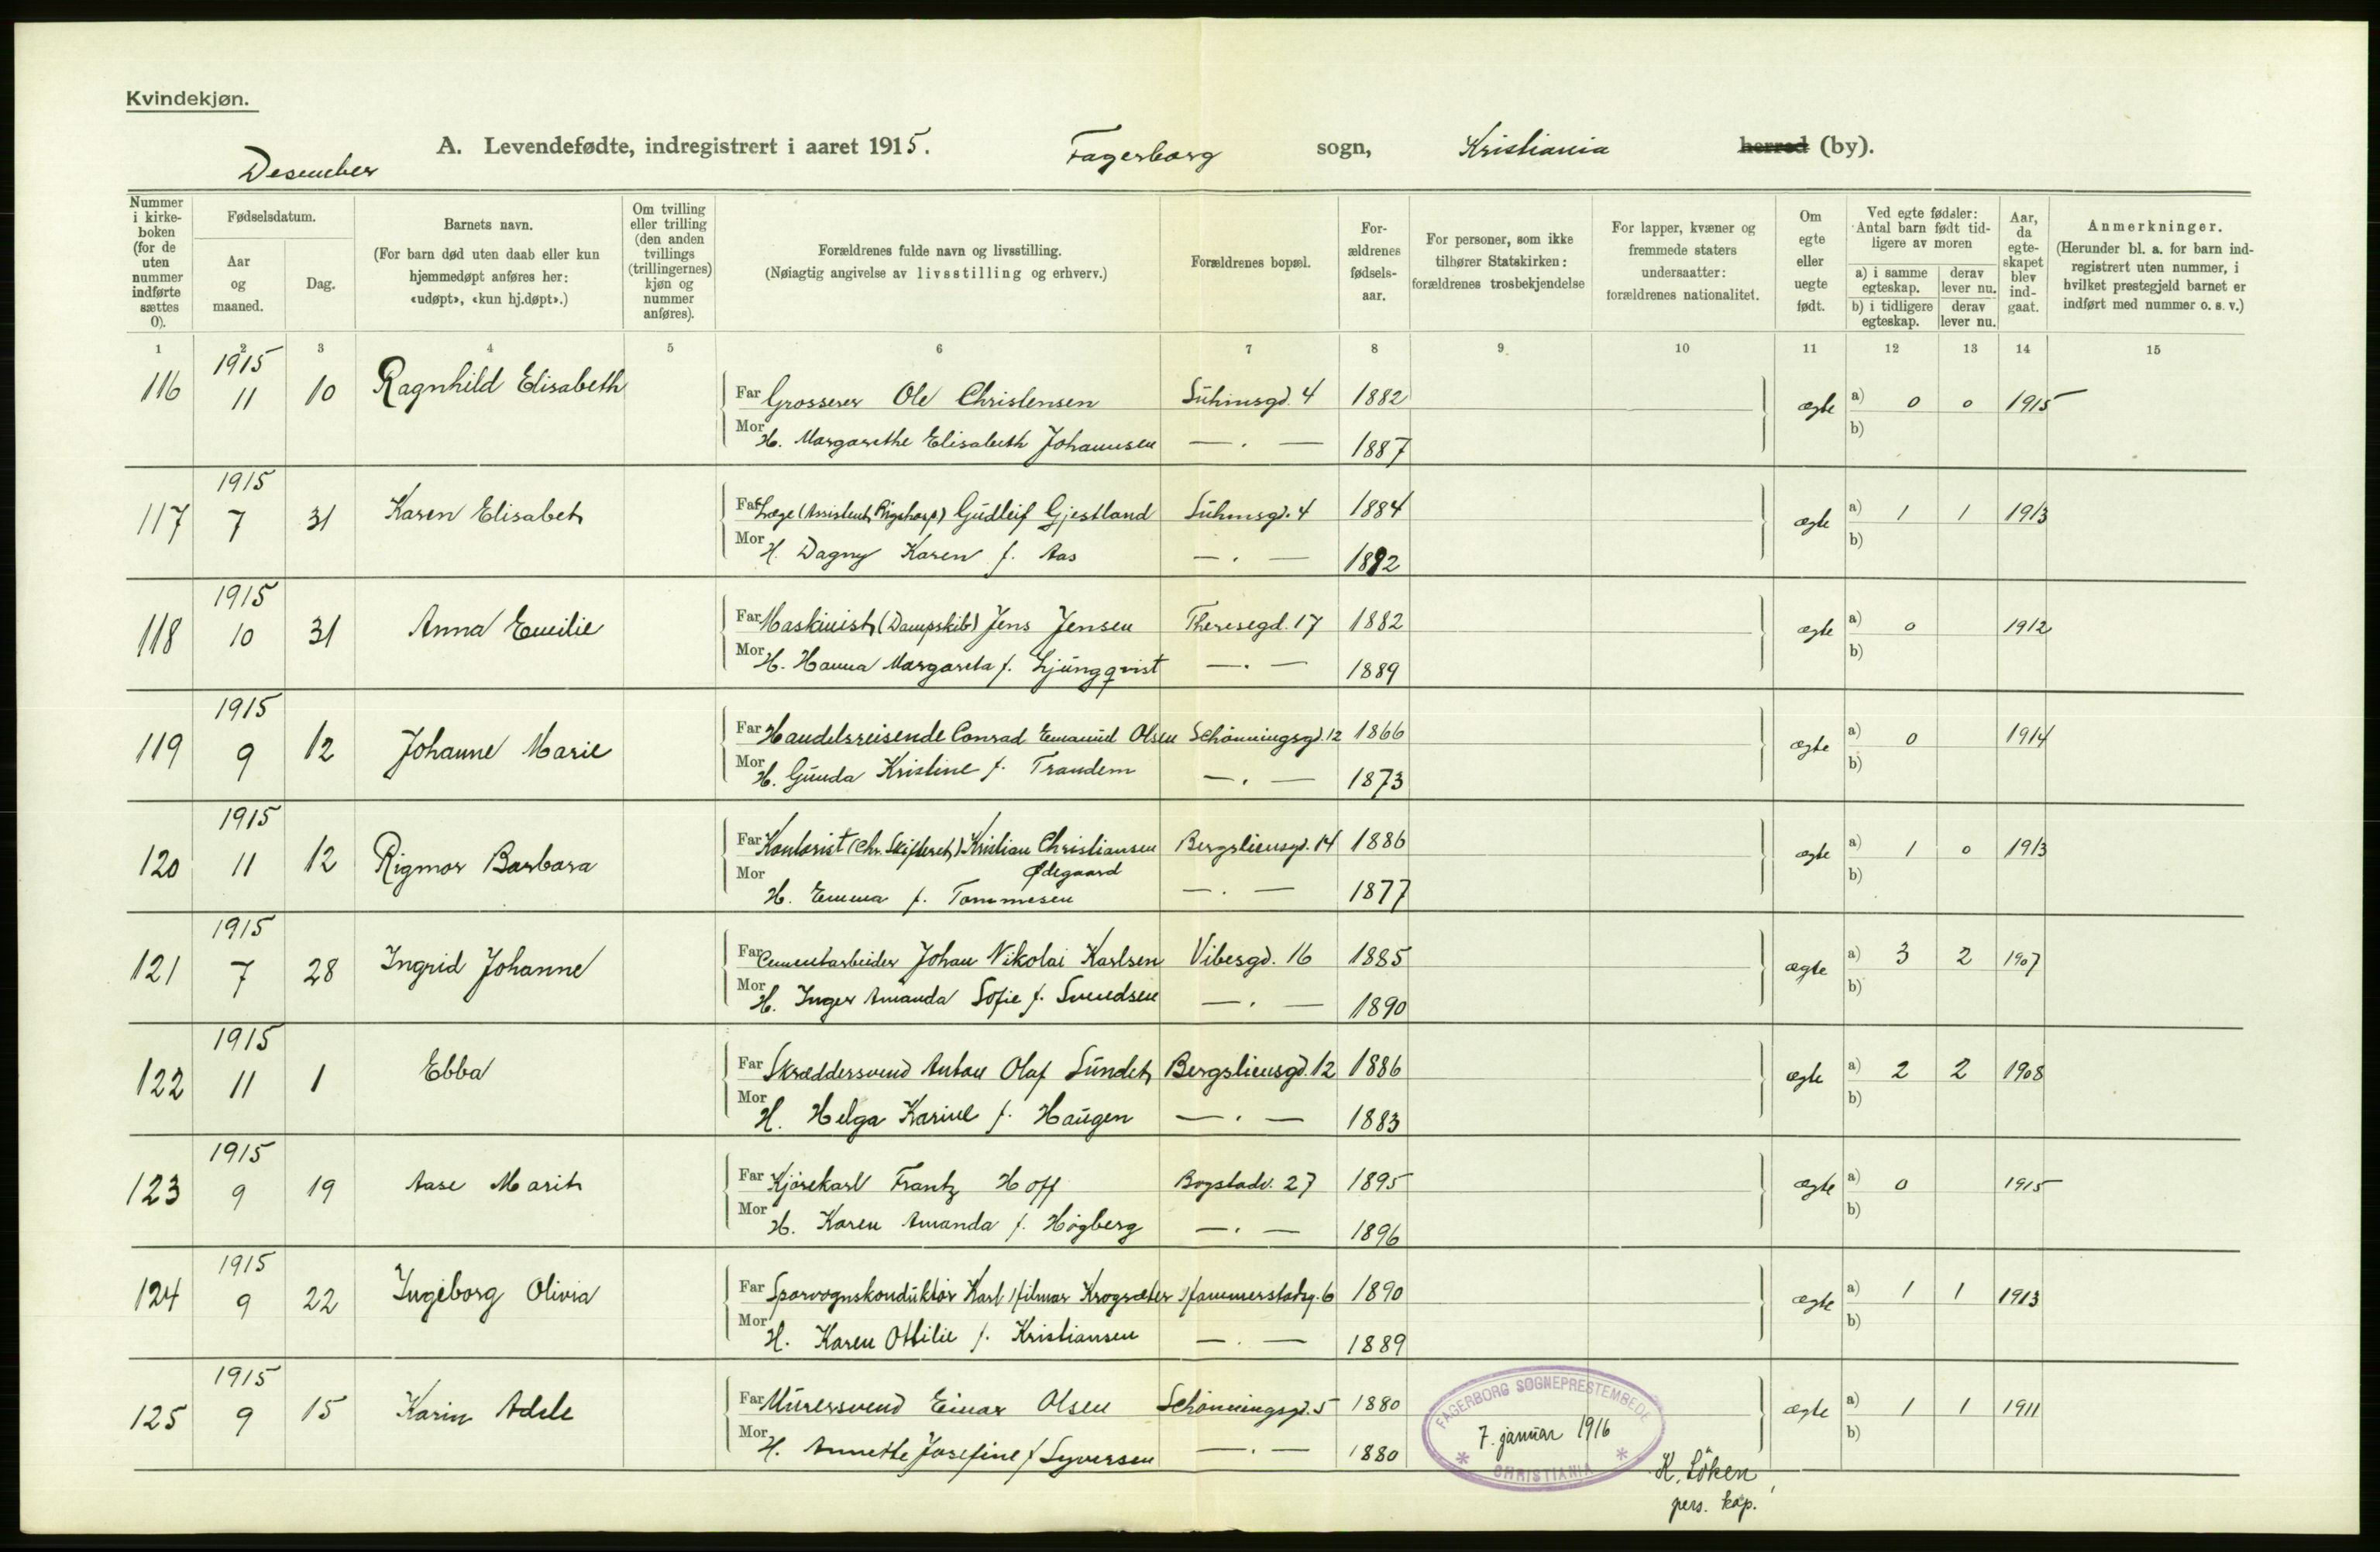 Kvindekjøn.
A. Levendefødte, indregistrert i aaret 1915. Fagerborg sogn, Kristiania herred (by).
Desember
Nummer i kirkeboken (for de uten nummer indførte sættes 0).
Fødselsdatum.
Aar og maaned.
Dag.
Barnets navn.
(For barn død uten daab eller kun hjemmedøpt anføres her: «udøpt», «kun hj.døpt».)
Om tvilling eller trilling (den anden tvillings (trillingernes) kjøn og nummer anføres).
Forældrenes fulde navn og livsstilling.
(Nøiagtig angivelse av livsstilling og erhverv.)
Forældrenes bopæl.
Forældrenes fødselsaar.
For personer, som ikke tilhører Statskirken: forældrenes trosbekjendelse
For lapper, kvæner og fremmede staters undersaatter: forældrenes nationalitet.
Om egte eller uegte født.
Ved egte fødsler: Antal barn født tidligere av moren
a) i samme egteskap.
derav lever nu.
b) i tidligere egteskap.
derav lever nu.
Aar, da egteskapet blev indgaat.
Anmerkninger.
(Herunder bl. a. for barn indregistrert uten nummer, i hvilket prestegjeld barnet er indført med nummer o. s. v.)
1 2 3 4 5 6 7 8 9 10 11 12 13 14 15
1915
116 11 10 Ragnhild Elisabeth Far Grosserer Ole Christensen Suhmsgd. 4 1882 ægte a) 0 0 1915
Mor H. Margarethe Elisabeth Johannsen — . — 1887 b)
1915
117 7 31 Karen Elisabet Far Læge (Assistent Rigshosp) Gudleif Gjestland Suhmsgd. 4 1884 ægte a) 1 1 1913
Mor H. Dagny Karen f. Aas — . — 1892 b)
1915
118 10 31 Anna Emilie Far Maskinist (Dampskib) Jens Jensen Theresegd. 17 1882 ægte a) 0 1912
Mor H. Hanna Margareta f. Ljungqvist — . — 1889 b)
1915
119 9 12 Johanne Marie Far Handelsreisende Conrad Emanuel Olsen Schønningsgd. 12 1866 ægte a) 0 1914
Mor H. Gunda Kristine f. Trandem — . — 1873 b)
1915
120 11 12 Rigmor Barbara Far Kontorist (Chr. Skifteret) Kristian Christiansen Bergsliensgd. 14 1886 ægte a) 1 0 1913
Ødegaard
Mor H. Emma f. Tommesen — . — 1877 b)
1915
121 7 28 Ingrid Johanne Far Cementarbeider Johan Nikolai Karlsen Vibesgd. 16 1885 ægte a) 3 2 1907
Mor H. Inger Amanda Sofie f. Svendsen — . — 1890 b)
1915
122 11 1 Ebba Far Skræddersvend Anton Olaf Sundet Bergsliensgd. 12 1886 ægte a) 2 2 1908
Mor H. Helga Karine f. Haugen — . — 1883 b)
1915
123 9 19 Aase Marit Far Kjørekarl Frantz Hoff Bogstadv. 27 1895 ægte a) 0 1915
Mor H. Karen Amanda f. Høgberg — . — 1896 b)
1915
124 9 22 Ingeborg Olivia Far Sporvognskonduktør Karl Hilmar Krogsæter Hammerstadsg. 6 1890 ægte a) 1 1 1913
Mor H. Karen Ottilie f. Kristiansen — . — 1889 b)
1915
125 9 15 Karin Adele Far Murersvend Einar Olsen Schønningsgd. 5 1880 ægte a) 1 1 1911
Mor H. Annette Josefine f Syversen — . — 1880 b)
FAGERBORG SOGNEPRESTEMBEDE
7. januar 1916
* CHRISTIANIA *
K. Löken
pers. kap.